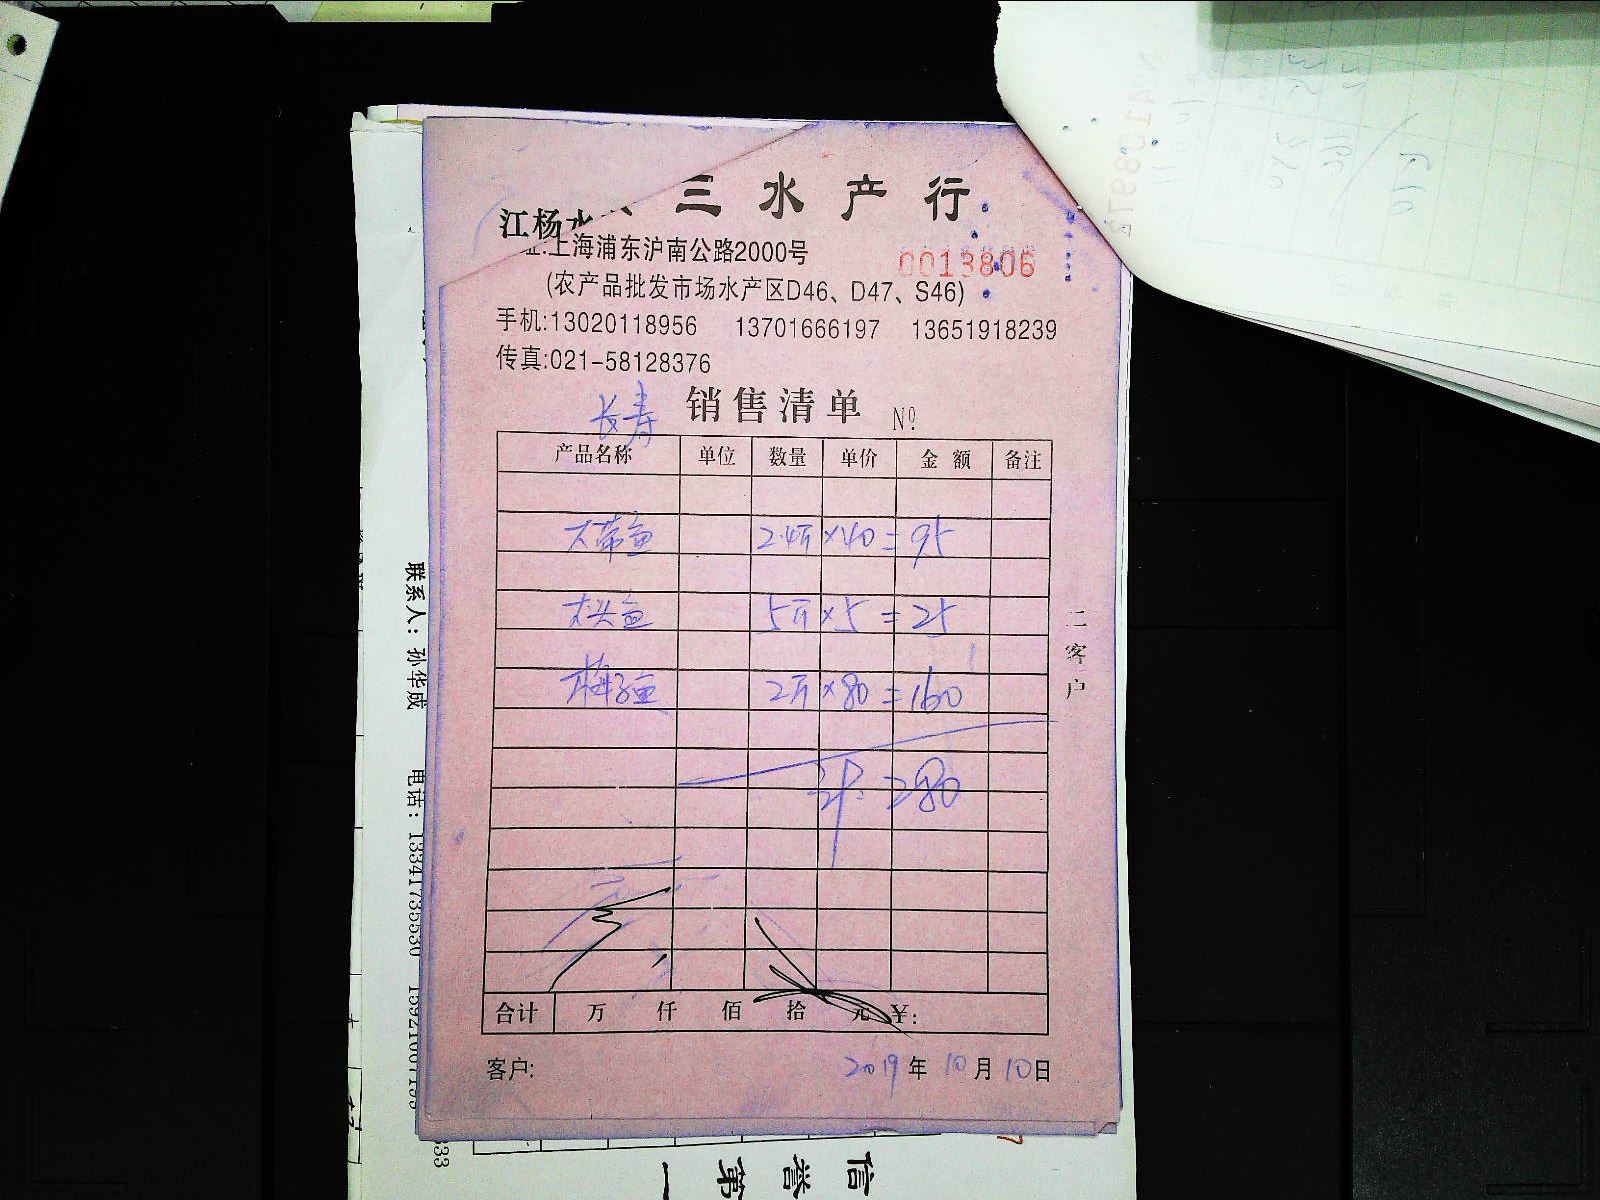 三水产行
江杨水
址:上海浦东沪南公路2000号
0013806
(农产品批发市场水产区D46、D47、S46)
手机:13020118956 13701666197 13651918239
传真:021-58128376
长寿 销售清单 Nº
产品名称 单位 数量 单价 金额 备注
大带鱼 2.4斤×40=95
大头鱼 5斤×5=25
梅子鱼 2斤×80=160
计:280
合计 万 仟 佰 拾 元 ¥:
客户: 2019年10月10日
二客户
联系人:孙华成 电话:13341735530
信誉第一